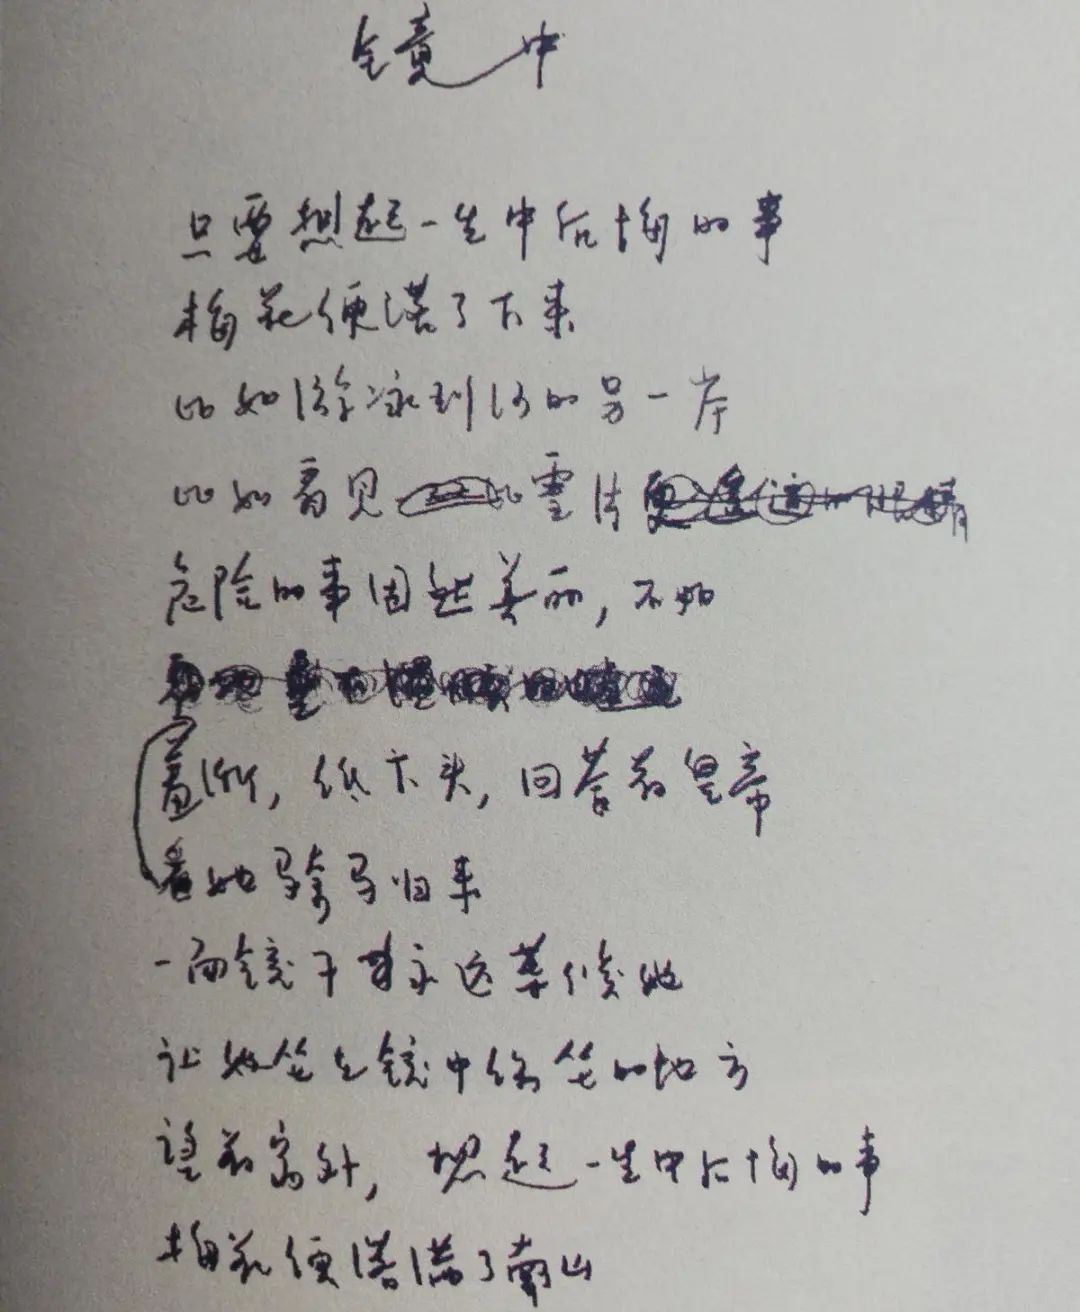 镜中
只要想起一生中后悔的事
梅花便落了下来
比如游泳到河的另一岸
比如看见雪片
危险的事固然美丽,不如
羞惭,低下头,回答着皇帝
看她骑马归来
一面镜子永远等候她
让她坐在镜中坐的地方
望着窗外,想起一生中后悔的事
梅花便落满了南山